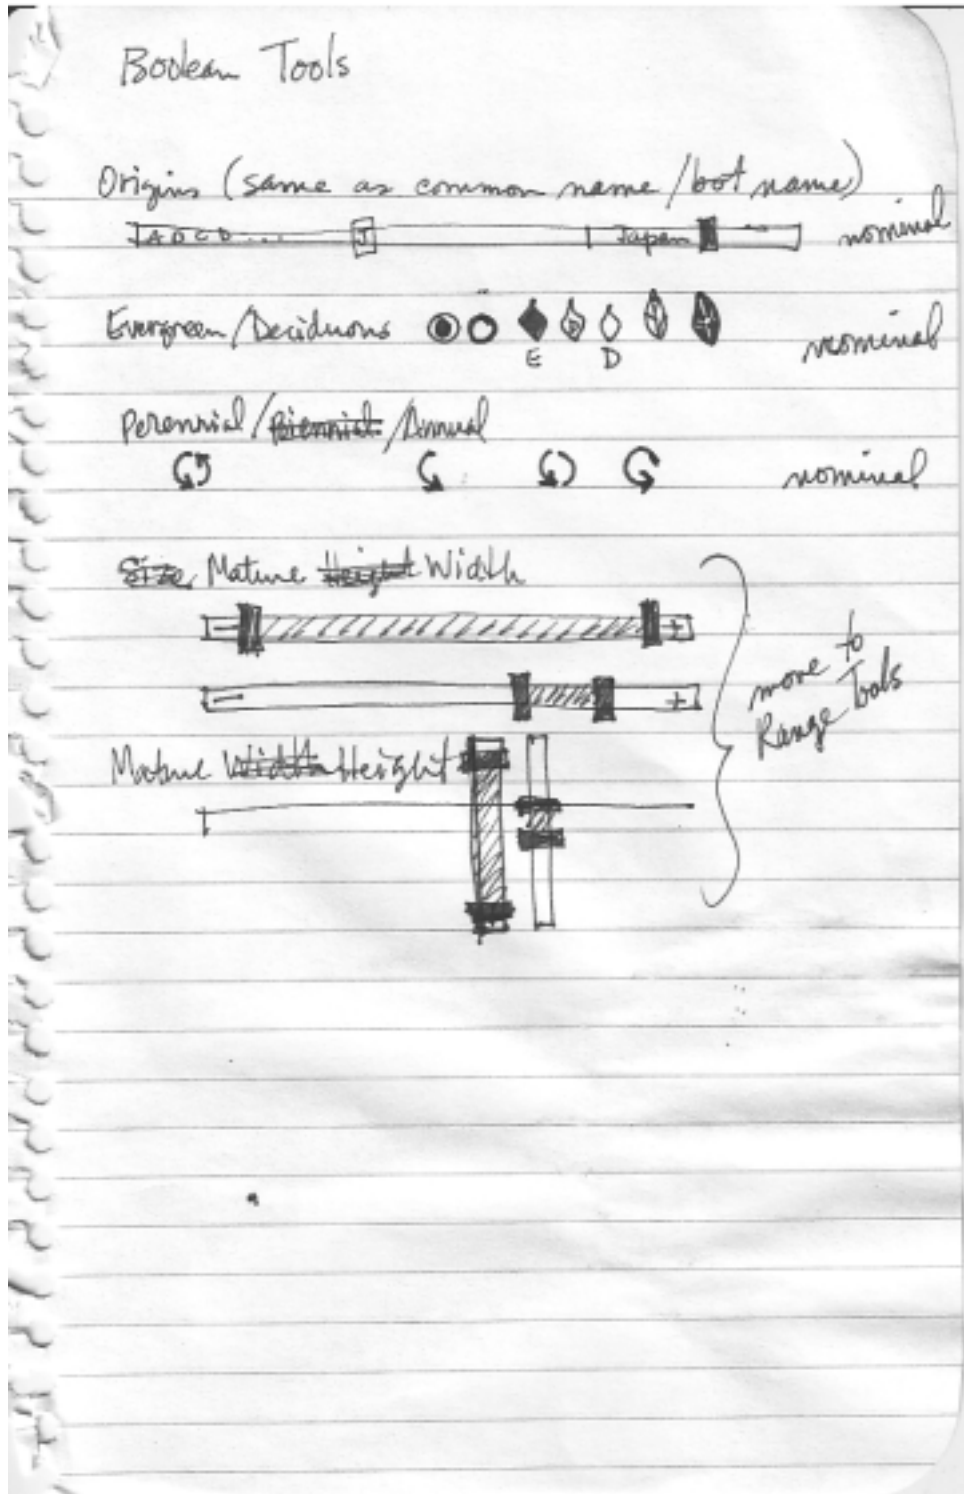 Boolean Tools
Origins (same as common name/bot name)
A B C D ... J Japan nominal
Evergreen/Deciduous nominal
E D
Perennial/Biennial/Annual
nominal
Size Mature Height Width
- +
- +
move to
Range Tools
Mature Width Height